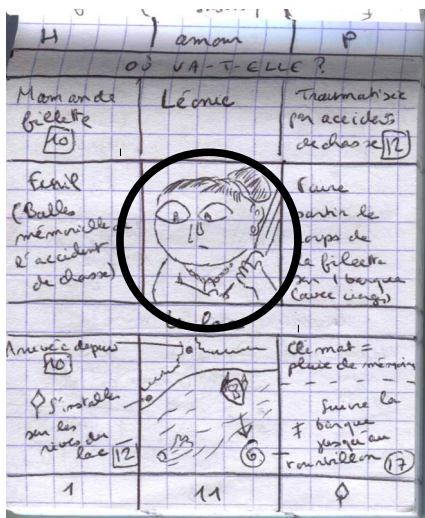 H amour P
OÙ VA-T-ELLE ?
Maman de
fillette
10
Léonie
Traumatisée
par accident
de chasse 12
Fusil
(Balles
mémorielle de
l'accident
de chasse)
Faire
partir le
corps de
la fillette
sur 1 barque
(avec
Le lac
Arrivée depuis
10
S'installer
sur les
rives du
lac 12
6
Climat =
pluie de mémoire
Suivre la
barque
jusqu'au
tourbillon 17
1 11